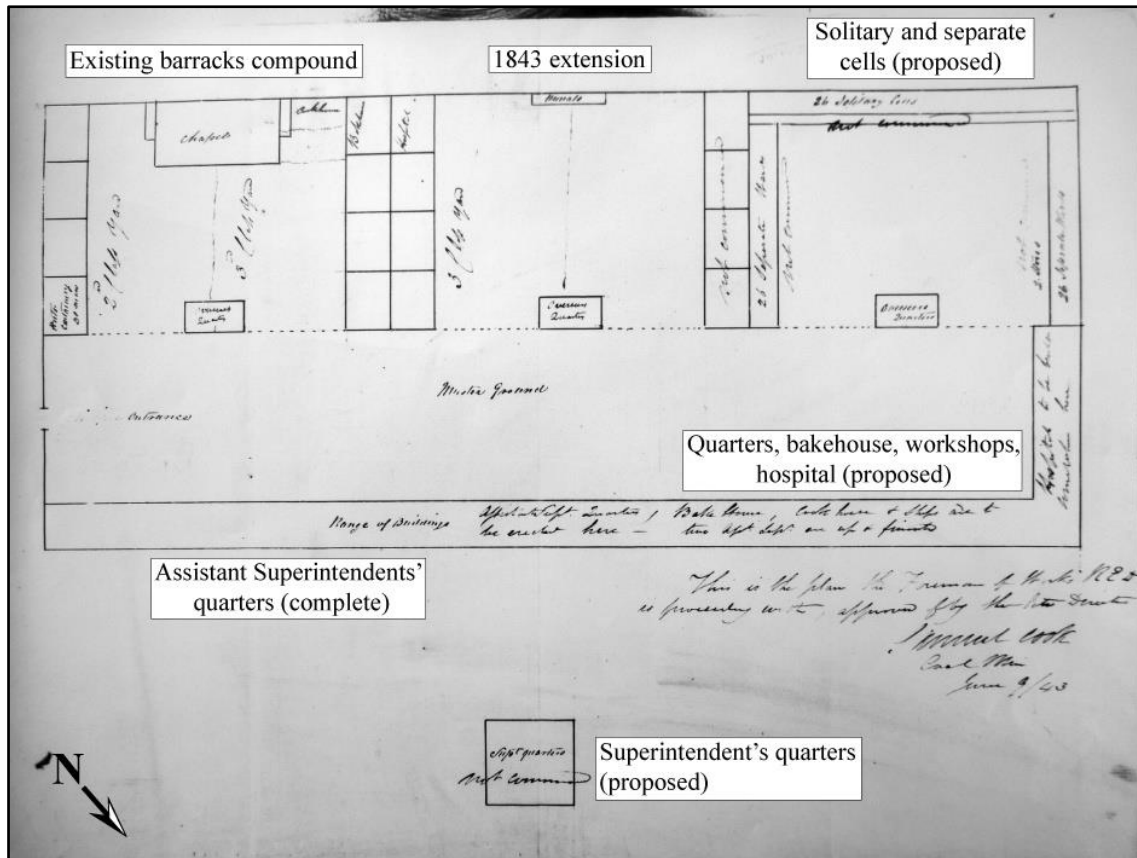 Existing barracks compound
1843 extension
Solitary and separate
cells (proposed)
26 Solitary Cells
not commenced
Chapel
Bakehouse
Hospital
2nd Class Yard
3rd Class Yard
3rd Class Yard
not commenced
26 Separate
not commenced
26 Separate
Overseers
Quarters
Overseers
Quarters
Overseers
Quarters
Muster Ground
Entrance
Quarters, bakehouse, workshops,
hospital (proposed)
Hospital to be
here
Range of Buildings
Quarters, Bake House, Cook house & Shops are to
be erected here — two are up & finished
Assistant Superintendents'
quarters (complete)
This is the plan the Foreman of Works R.E.D
is proceeding with, approved of by the
Samuel Cook
Coal Mines
June 9/43
Supt quarters
not commenced
Superintendent's quarters
(proposed)
N